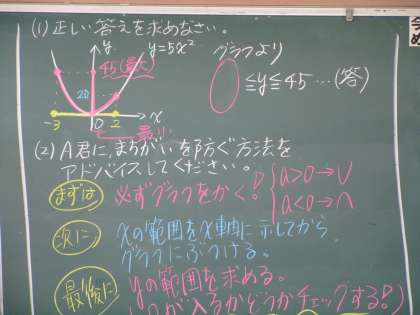 (1) 正しい答えを求めなさい。
y
y=5x²
グラフより
45(最大)
≦y≦45…(答)
20
-3
0
2
x
最小
(2) A君に、まちがいを防ぐ方法を
アドバイスしてください。
まずは
必ずグラフをかく!
a>0→∪
a<0→∩
次に
xの範囲をx軸に示してから
グラフにぶつける。
最後に
yの範囲を求める。
が入るかどうかチェックする!)